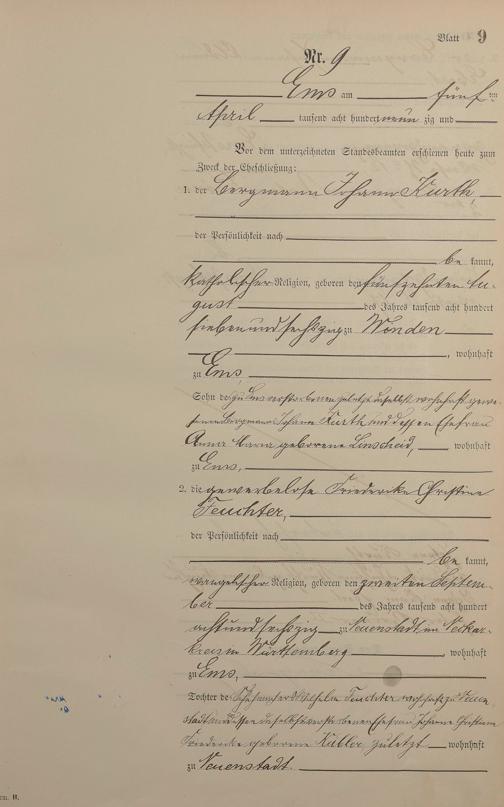 Blatt 9
Nr. 9
Ems am fünf ten
April tausend acht hundert neun zig und
Vor dem unterzeichneten Standesbeamten erschienen heute zum
Zweck der Eheschließung:
1. der Bergmann Johann Kurth,
der Persönlichkeit nach
be kannt,
katholischer Religion, geboren den fünfzehnten Au-
gust des Jahres tausend acht hundert
siebenundsechszig zu Wonden
, wohnhaft
zu Ems
Sohn des zu Ems verstorbenen zuletzt daselbst wohnhaft gewe-
senen Bergmann Johann Kurth und dessen Ehefrau
Anna Maria geborene Linscheid, wohnhaft
zu Ems,
2. die gewerbelose Friedericke Christine
Feuchter,
der Persönlichkeit nach
be kannt,
evangelischer Religion, geboren den zweiten Septem-
ber des Jahres tausend acht hundert
achtundsechszig zu Neuenstadt im Neckar-
kreis in Württemberg , wohnhaft
zu Ems,
Tochter des Wilhelm Feuchter wohnhaft zu Neuen-
stadt und dessen daselbst verstorbenen Ehefrau Johanne Christiane
Friedericke geborene Kübler, zuletzt wohnhaft
zu Neuenstadt.